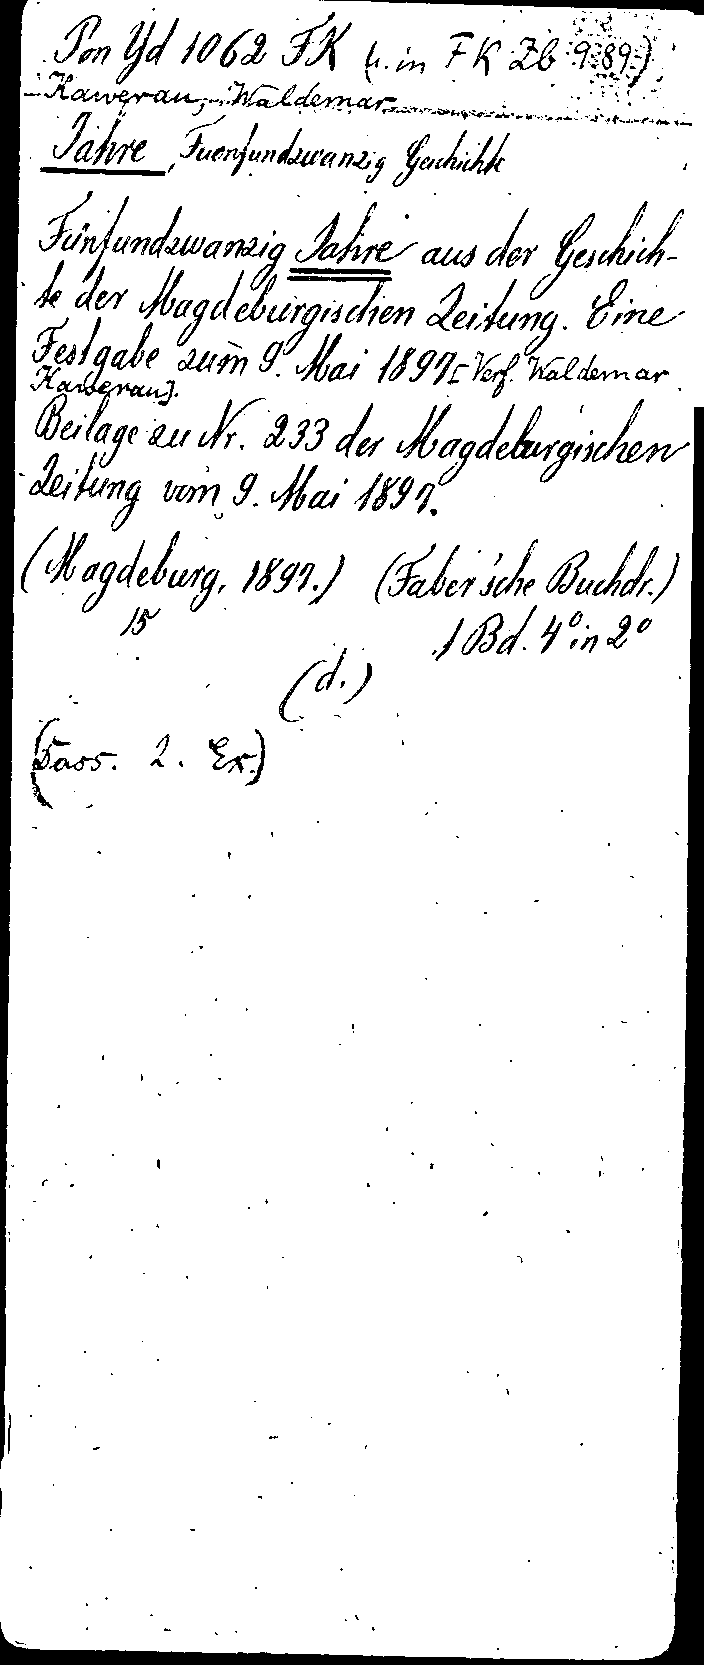 Pon Yd 1062 FK (u. in FK Zb 9.89.)
Kawerau, Waldemar
Jahre, Fuenfundzwanzig Geschichte
Fünfundzwanzig Jahre aus der Geschich-
te der Magdeburgischen Zeitung. Eine
Festgabe zum 9. Mai 1897. [Verf. Waldemar
Kawerau].
Beilage zu Nr. 233 der Magdeburgischen
Zeitung vom 9. Mai 1897.
(Magdeburg, 1897.) (Faber'sche Buchdr.)
15 1 Bd. 4° in 2°
(d.)
2. Ex.)